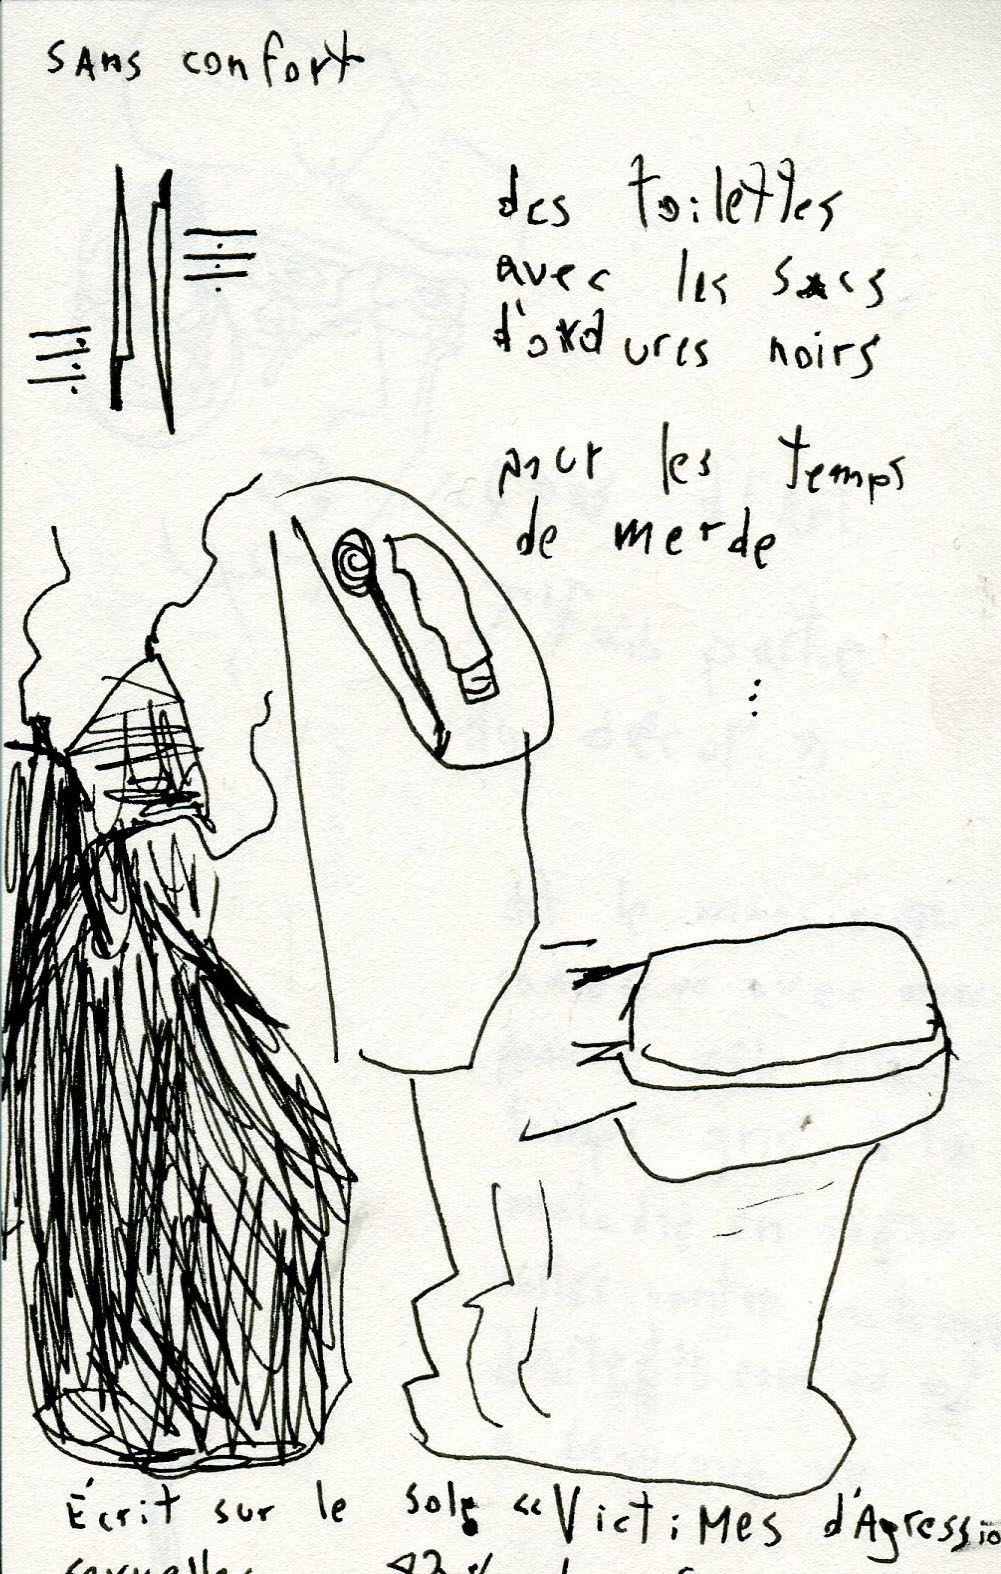 sans confort
des toilettes
avec les sacs
d'ordures noirs
pour les temps
de merde
...
Écrit sur le sol: «Victimes d'Agressio
sexuelles